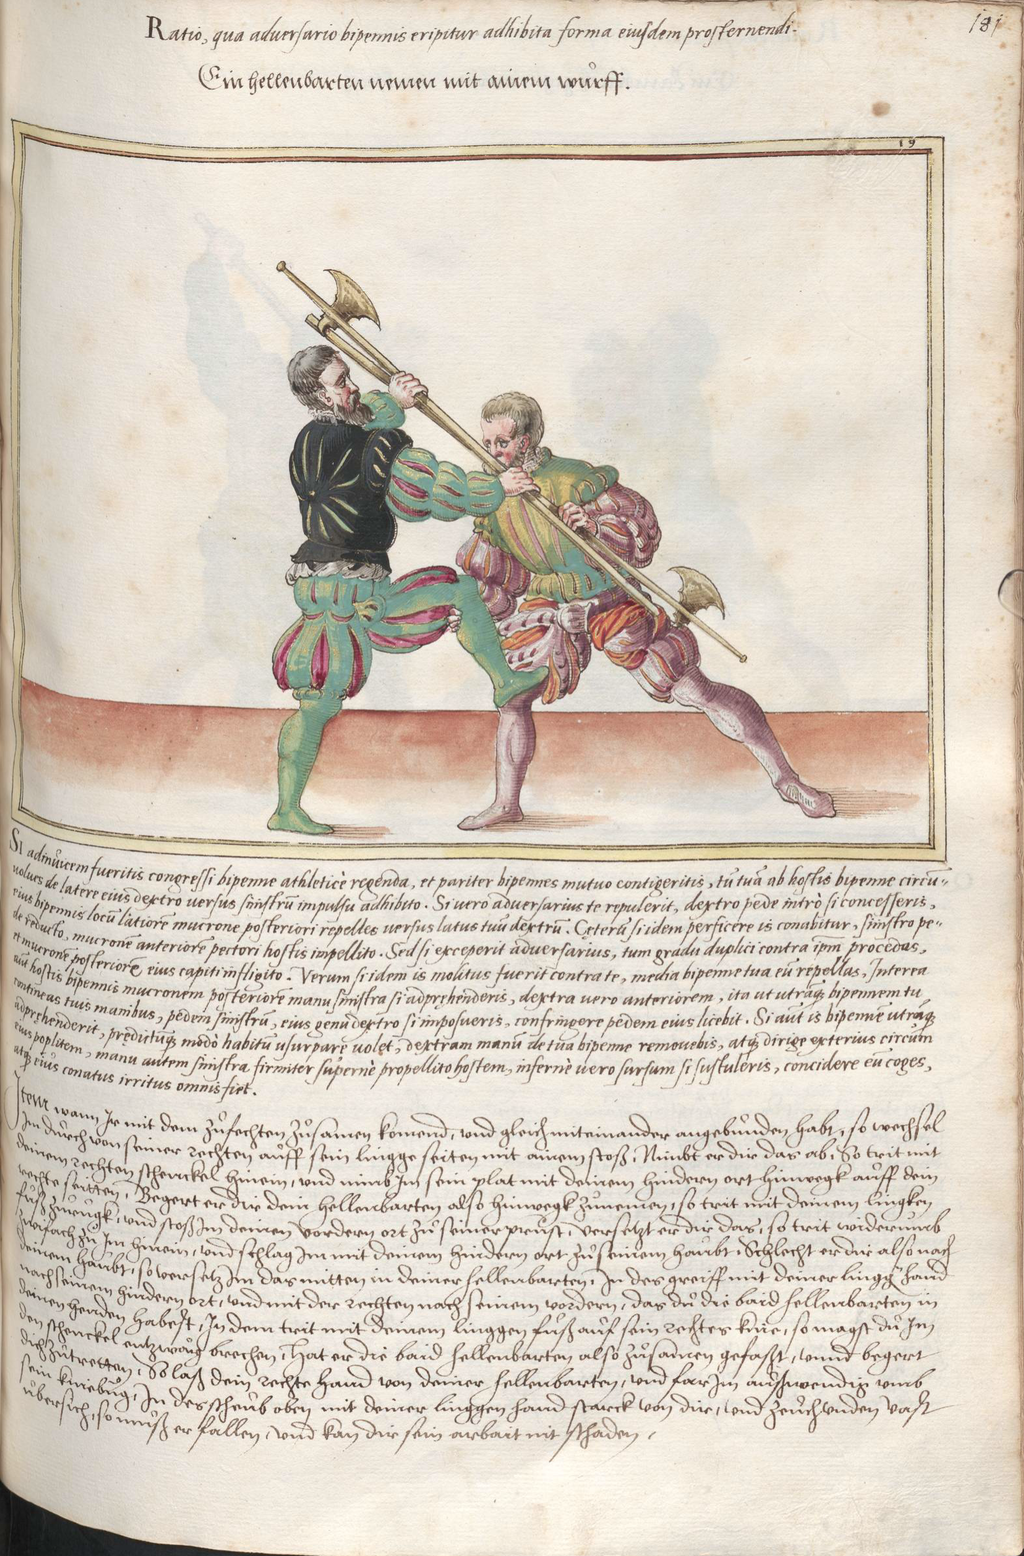 181
Ratio, qua adversario bipennis eripitur adhibita forma eiusdem prosternendi.
Ein hellenbarten nemen mit ainem wůrff.
19
SI adinuicem fueritis congressi bipenne athleticè regenda, et pariter bipennes mutuo contigeritis, tu tuã ab hostis bipenne circũ-
uolues de latere eius dextro versus sinistrũ impulsu adhibito. Si vero adversarius te repulerit, dextro pede intrò si concesseris,
eius bipennis locũ latiore mucrone posteriori repelles versus latus tuũ dextrũ. Cęterũ si idem perficere is conabitur, sinistro pe-
de reducto, mucronẽ anteriorẽ pectori hostis impellito. Sed si exceperit adversarius, tum gradu duplici contra ipm̃ procedas,
et mucronẽ posteriorẽ eius capiti infligito. Verum si idem is molitus fuerit contra te, media bipenne tua eũ repellas, Interea
aũt hostis bipennis mucronem posteriorẽ manu sinistra si adprehenderis, dextra vero anteriorem, ita ut utrãq bipennem tu
contineas tuis manibus, pedem sinistrũ, eius genu dextro si imposueris, confringere pedem eius licebit. Si aũt is bipenne utrãq
adprehenderit, predictũq modo habitu usurpare volet, dextram manũ de tua bipenne removebis, atq dirige exterius circũm
eius poplitem, manu autem sinistra firmiter superne propellito hostem, infernè vero sursum si sustuleris, concidere eũ coges,
atq eius conatus irritus omnis fiet.
Item wann Ir mit dem zůfechten zůsamen komend, und gleich miteinander angebůnden habt, so wechsel
Im důrch von seiner rechten aůff sein lingge seiten mit ainem stoß, Nimbt er dir das ab, So trit mit
deinem rechten schenckel hinein, und nimb Im sein plat mit deinem hindern ort hinwegk aůff dein
rechte seitten, Begert er dir dein hellenbarten also hinwegk zůnemen, so trit mit deinem lingken
fůß zůrůgk, und stoß Im deinen vordern ort zů seiner průst, versetzt er dir das, so trit widerumb
zwifach zů Im hinein, und schlag Im mit deinem hindern ort zů seinem haůbt, Schlecht er dir also nach
deinem haůbt, so versetz Im das mitten in deiner hellenbarten, In des greiff mit deiner lingg hand
nach seinem hindern ort, und mit der rechten nach seinem vordern, das dů die baid hellenbarten in
deinen henden habest, In dem trit mit deinem linggen fůß aůf sein rechtes knie, so magst dů Im
den schenckel entzwaÿ brechen, Hat er die baid hellenbarten also zůsamen gefaßt, unnd begert
dich zůtretten, So laß dein rechte hand von deiner hellenbarten, und far Im aůßwendig umb
sein kniebůg, In des scheůb oben mit deiner linggen hand starck von dir, und zeůch unden vast
ůbersich, so můß er fallen, und kan dir sein arbait nit schaden.